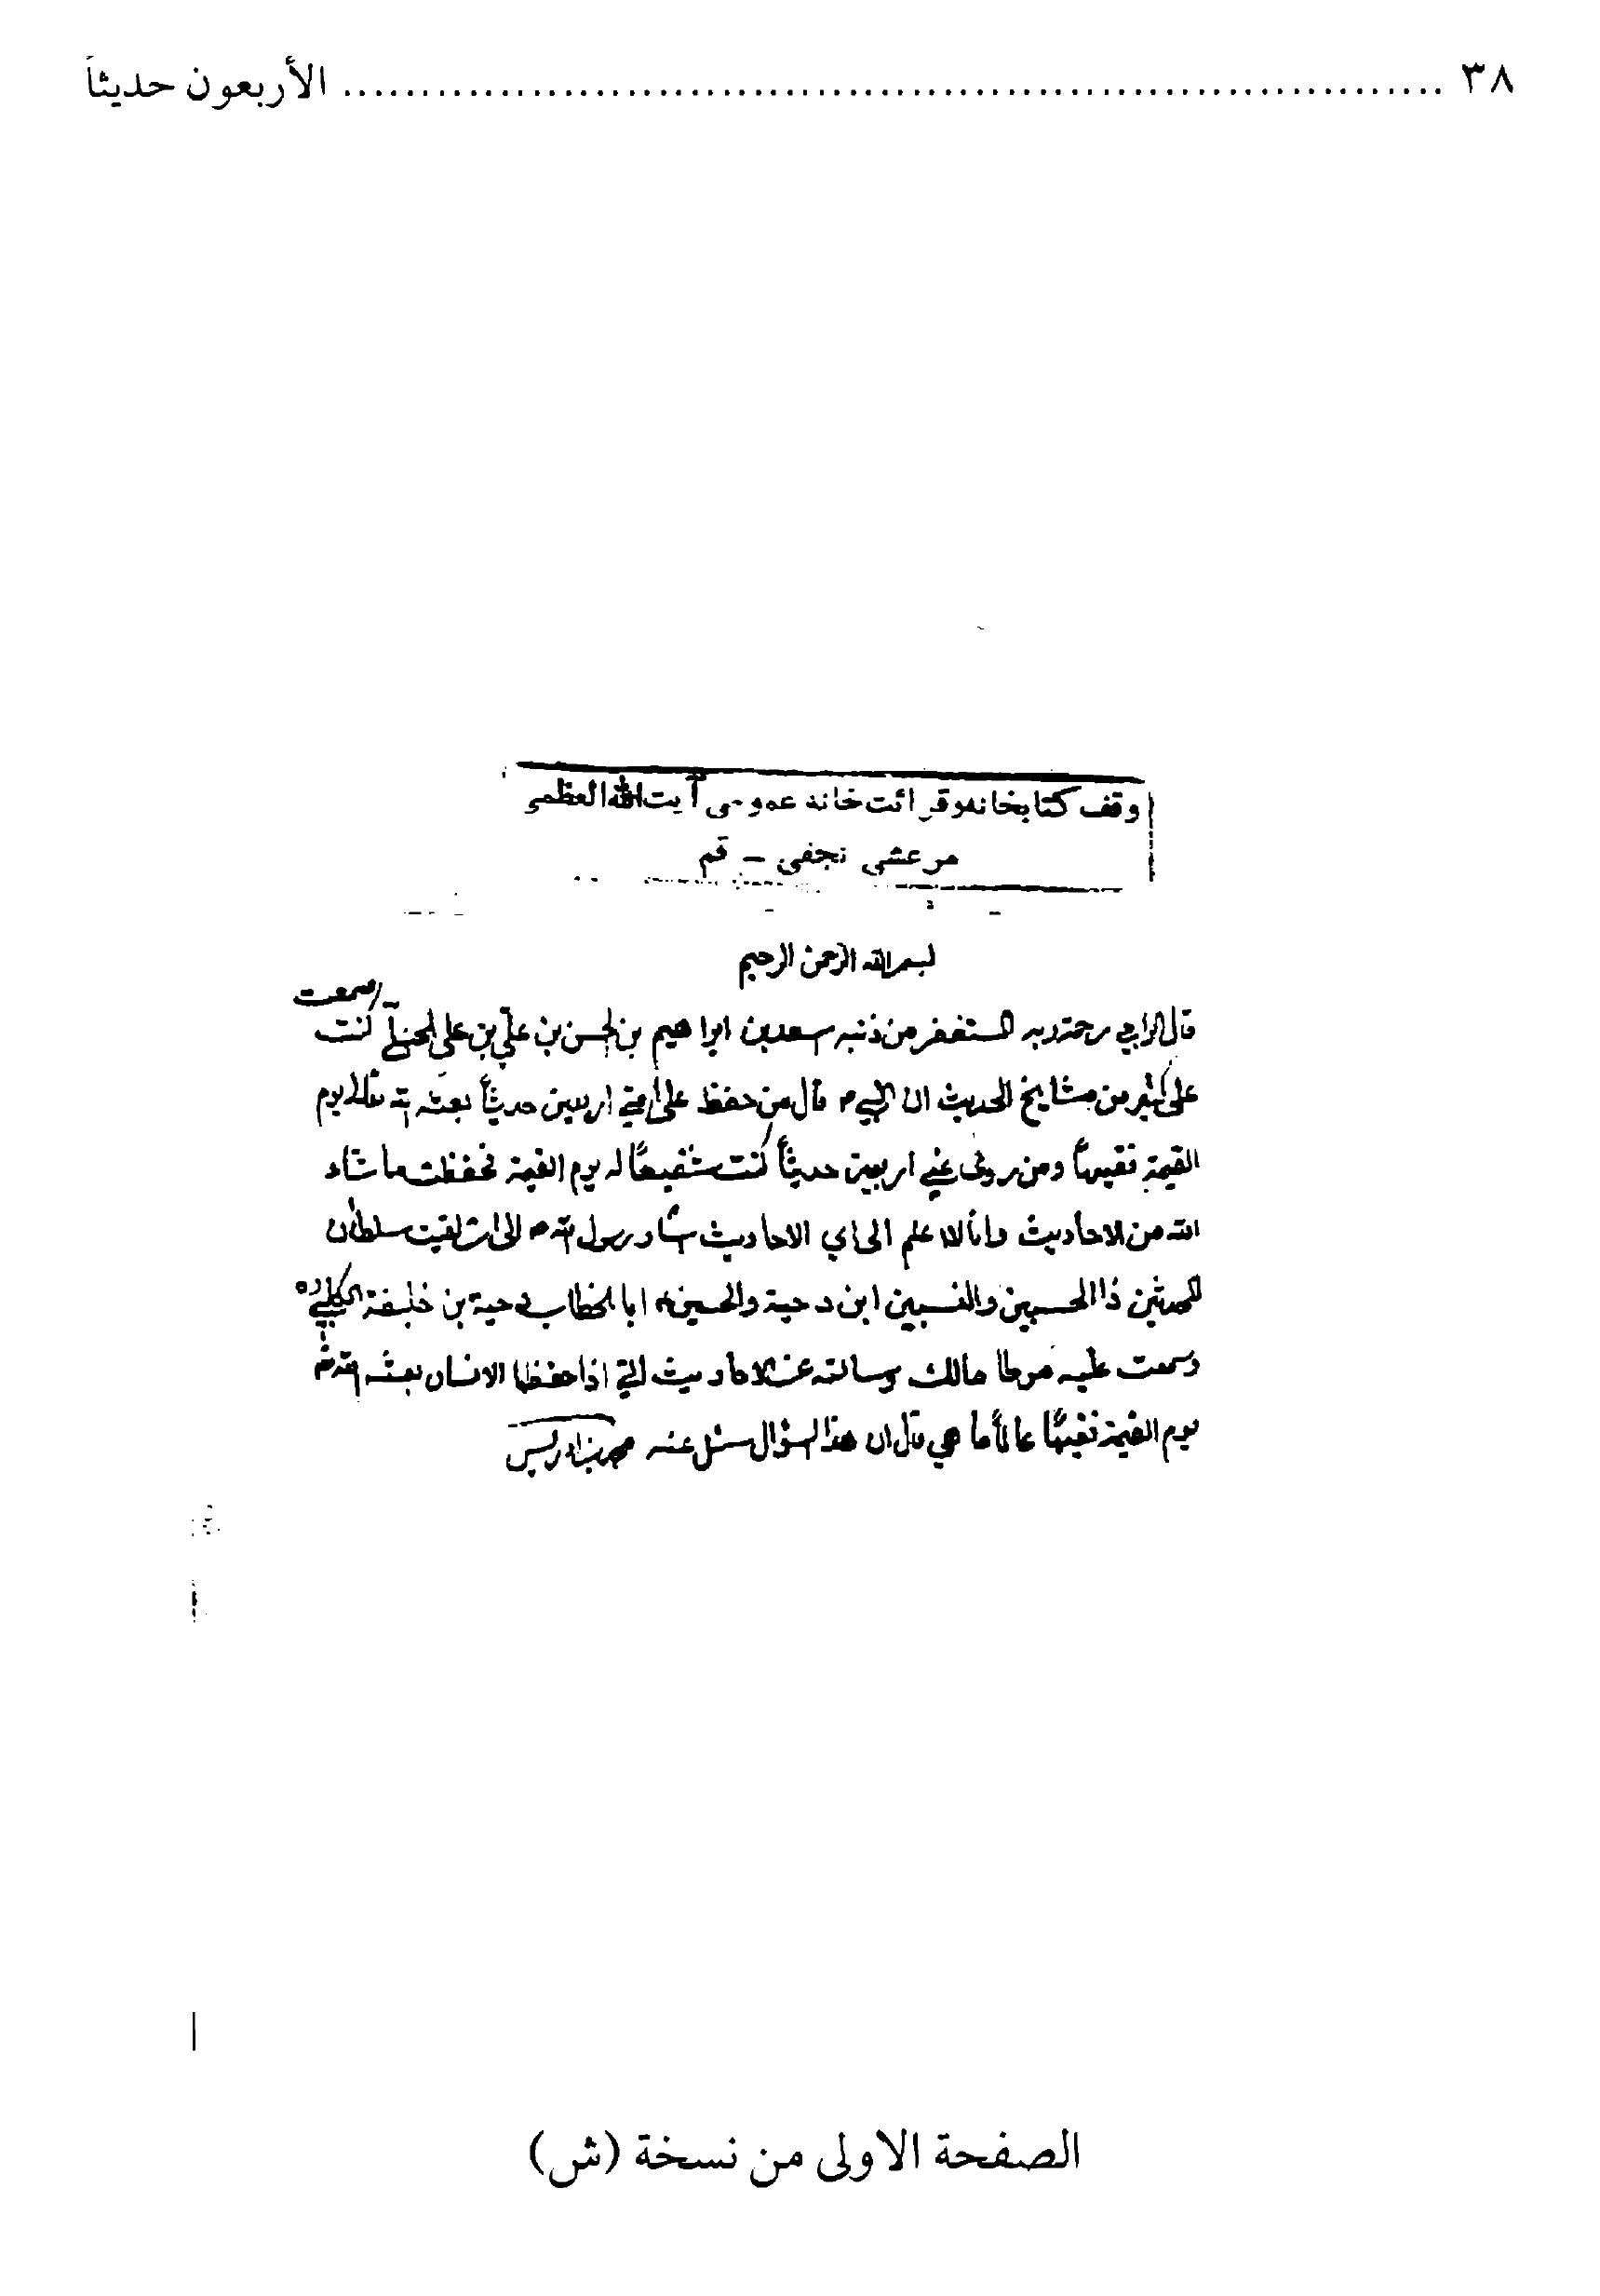 ٣٨ ........................................ الأربعون حديثاً
وقف كتابخانه و قرائت خانه عمومى آيت الله العظمى
مرعشى نجفى - قم
بسم الله الرحمن الرحيم
سمعت
قال الراجي رحمة ربه المستغفر من ذنبه سعد بن ابراهيم بن الحسن بن علي بن على الحنبلي كنت
على كثير من مشايخ الحديث ان النبي م قال من حفظ على امتي اربعين حديثاً بعثه الله تعالى يوم
القيمة فقيهاً ومن روى عني اربعين حديثاً كنت شفيعاً له يوم القيمة فحفظت ما شاء
الله من الاحاديث وانا لا اعلم الى اي الاحاديث اشار رسول الله م الى ان لقيت سلطان
المحدثين ذا الحسبين والنسبين ابن دحية والحسين ابا الخطاب بن دحية بن خليفة الكلبي ره
وسمعت عليه موطا مالك وسالته عن الاحاديث التي اذا حفظها الانسان بعثه الله
يوم القيمة فقيهاً عالماً ما هي قال ان هذا السؤال سئل عنه محمد بن ادريس
الصفحة الاولى من نسخة (ش)